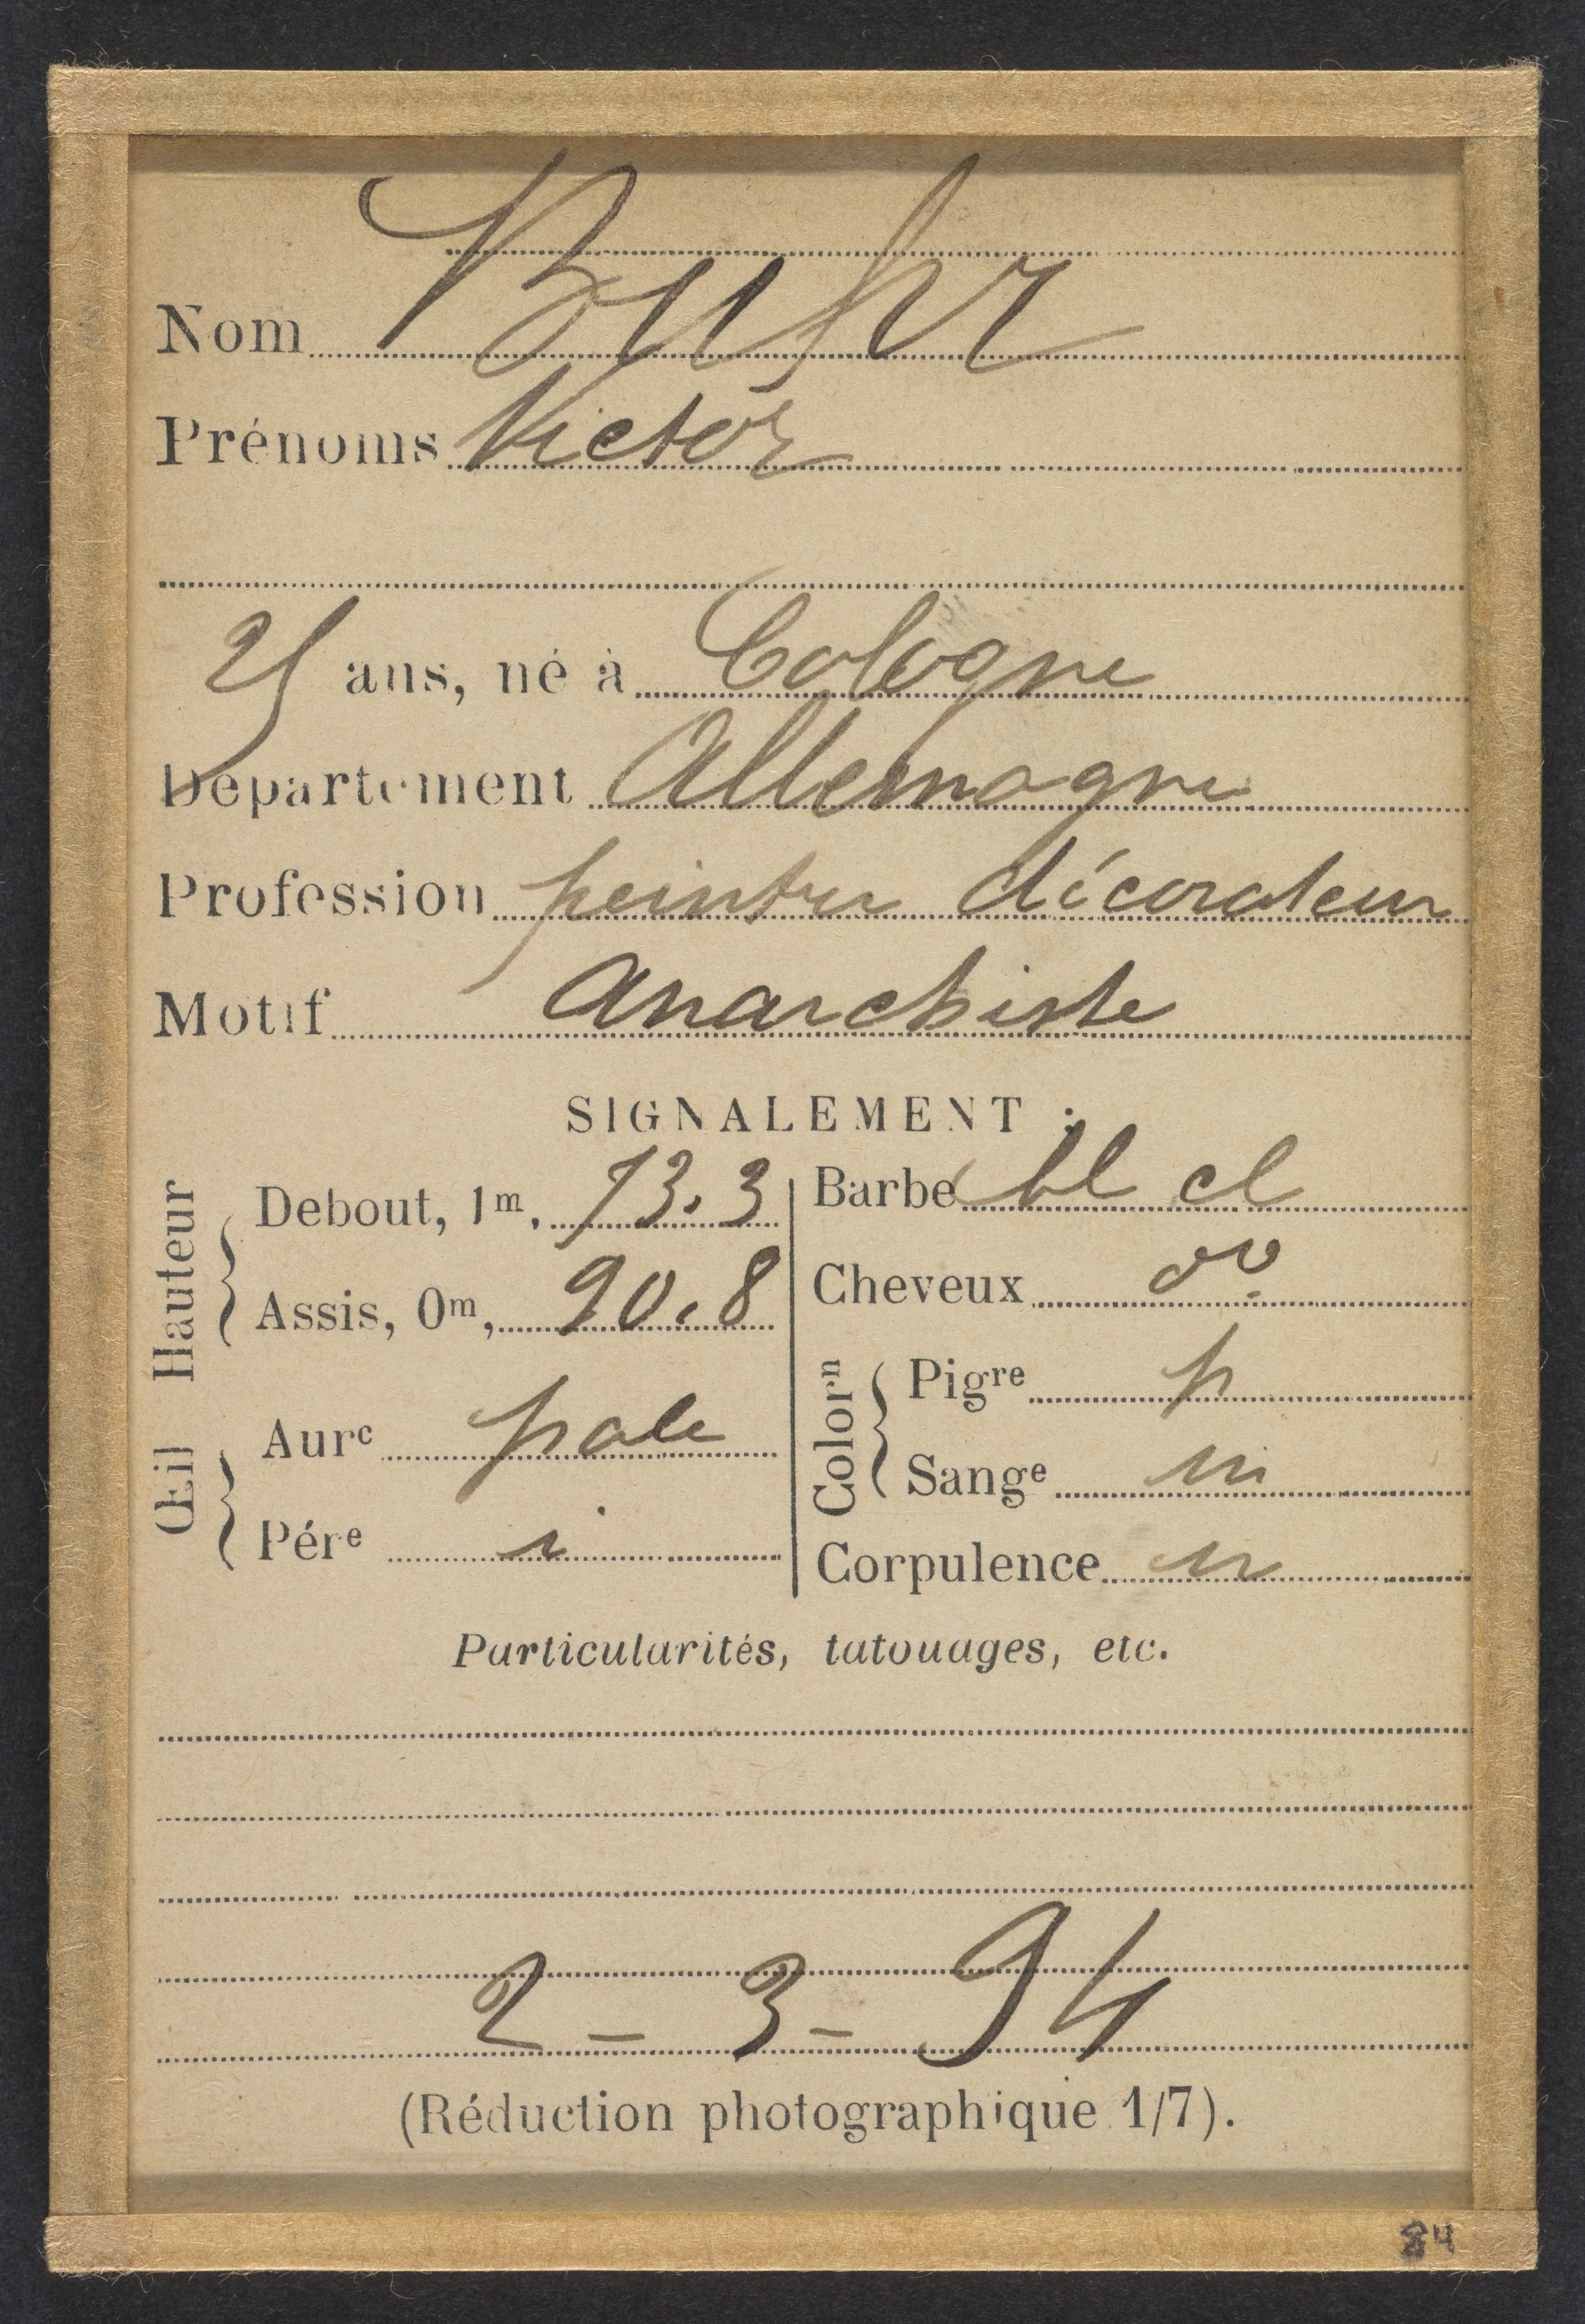 Nom Buhr
Prénoms Victor
ans, né à Cologne
Département Allemagne
Profession peintre décorateur
Motif anarchiste
SIGNALEMENT :
Hauteur
Debout, 1m, 73.3
Assis, 0m, 90.8
Œil
Aurc pale
Pére i
Barbe bl cl
Cheveux do
Colorn
Pigre p
Sange m
Corpulence m
Particularités, tatouages, etc.
2 - 3 - 94
(Réduction photographique 1/7).
84